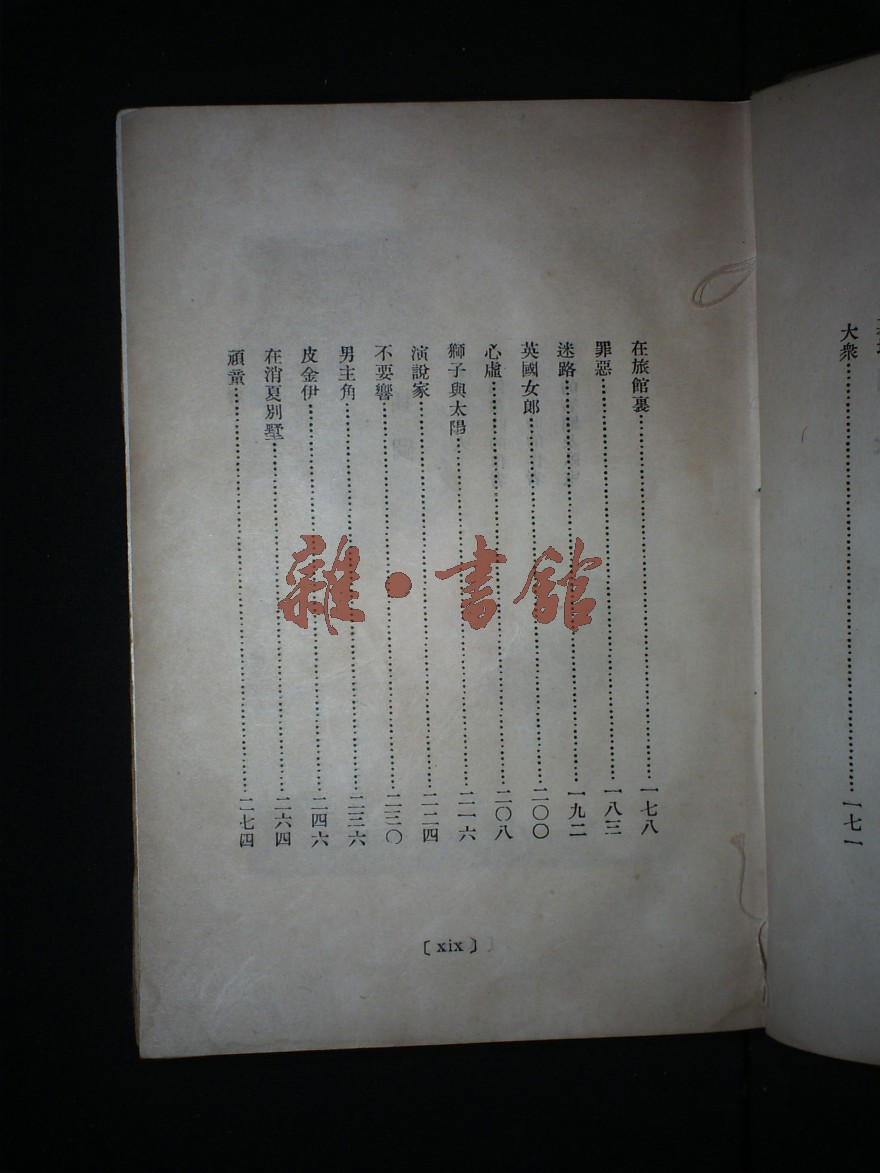 大衆……………………一七一
在旅館裏……………………一七八
罪惡……………………一八三
迷路……………………一九二
英國女郎……………………二〇〇
心虛……………………二〇八
獅子與太陽……………………二一六
演說家……………………二二四
不要響……………………二三〇
男主角……………………二三六
皮金伊……………………二四六
在消夏別墅……………………二六四
頑童……………………二七四
〔xix〕
雜·書館